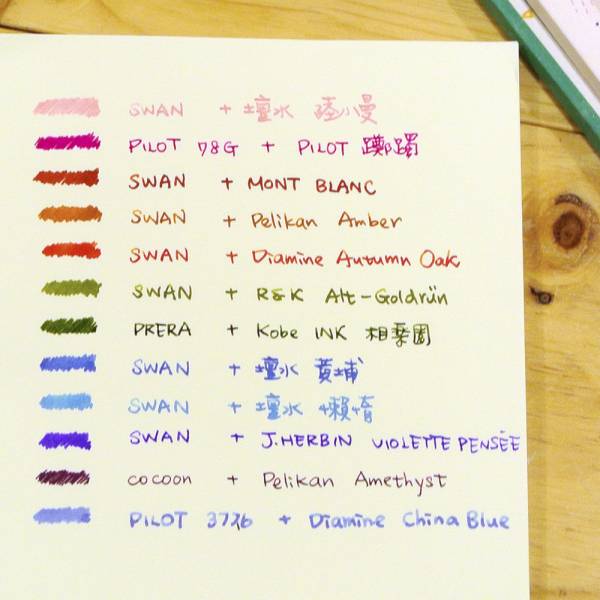 SWAN + 壇水 陸小曼
PILOT 78G + PILOT 躑躅
SWAN + MONT BLANC
SWAN + Pelikan Amber
SWAN + Diamine Autumn Oak
SWAN + R&K Alt-Goldrün
PRERA + Kobe INK 相楽園
SWAN + 壇水 黃埔
SWAN + 壇水 懶惰
SWAN + J.HERBIN VIOLETTE PENSÉE
cocoon + Pelikan Amethyst
PILOT 3776 + Diamine China Blue